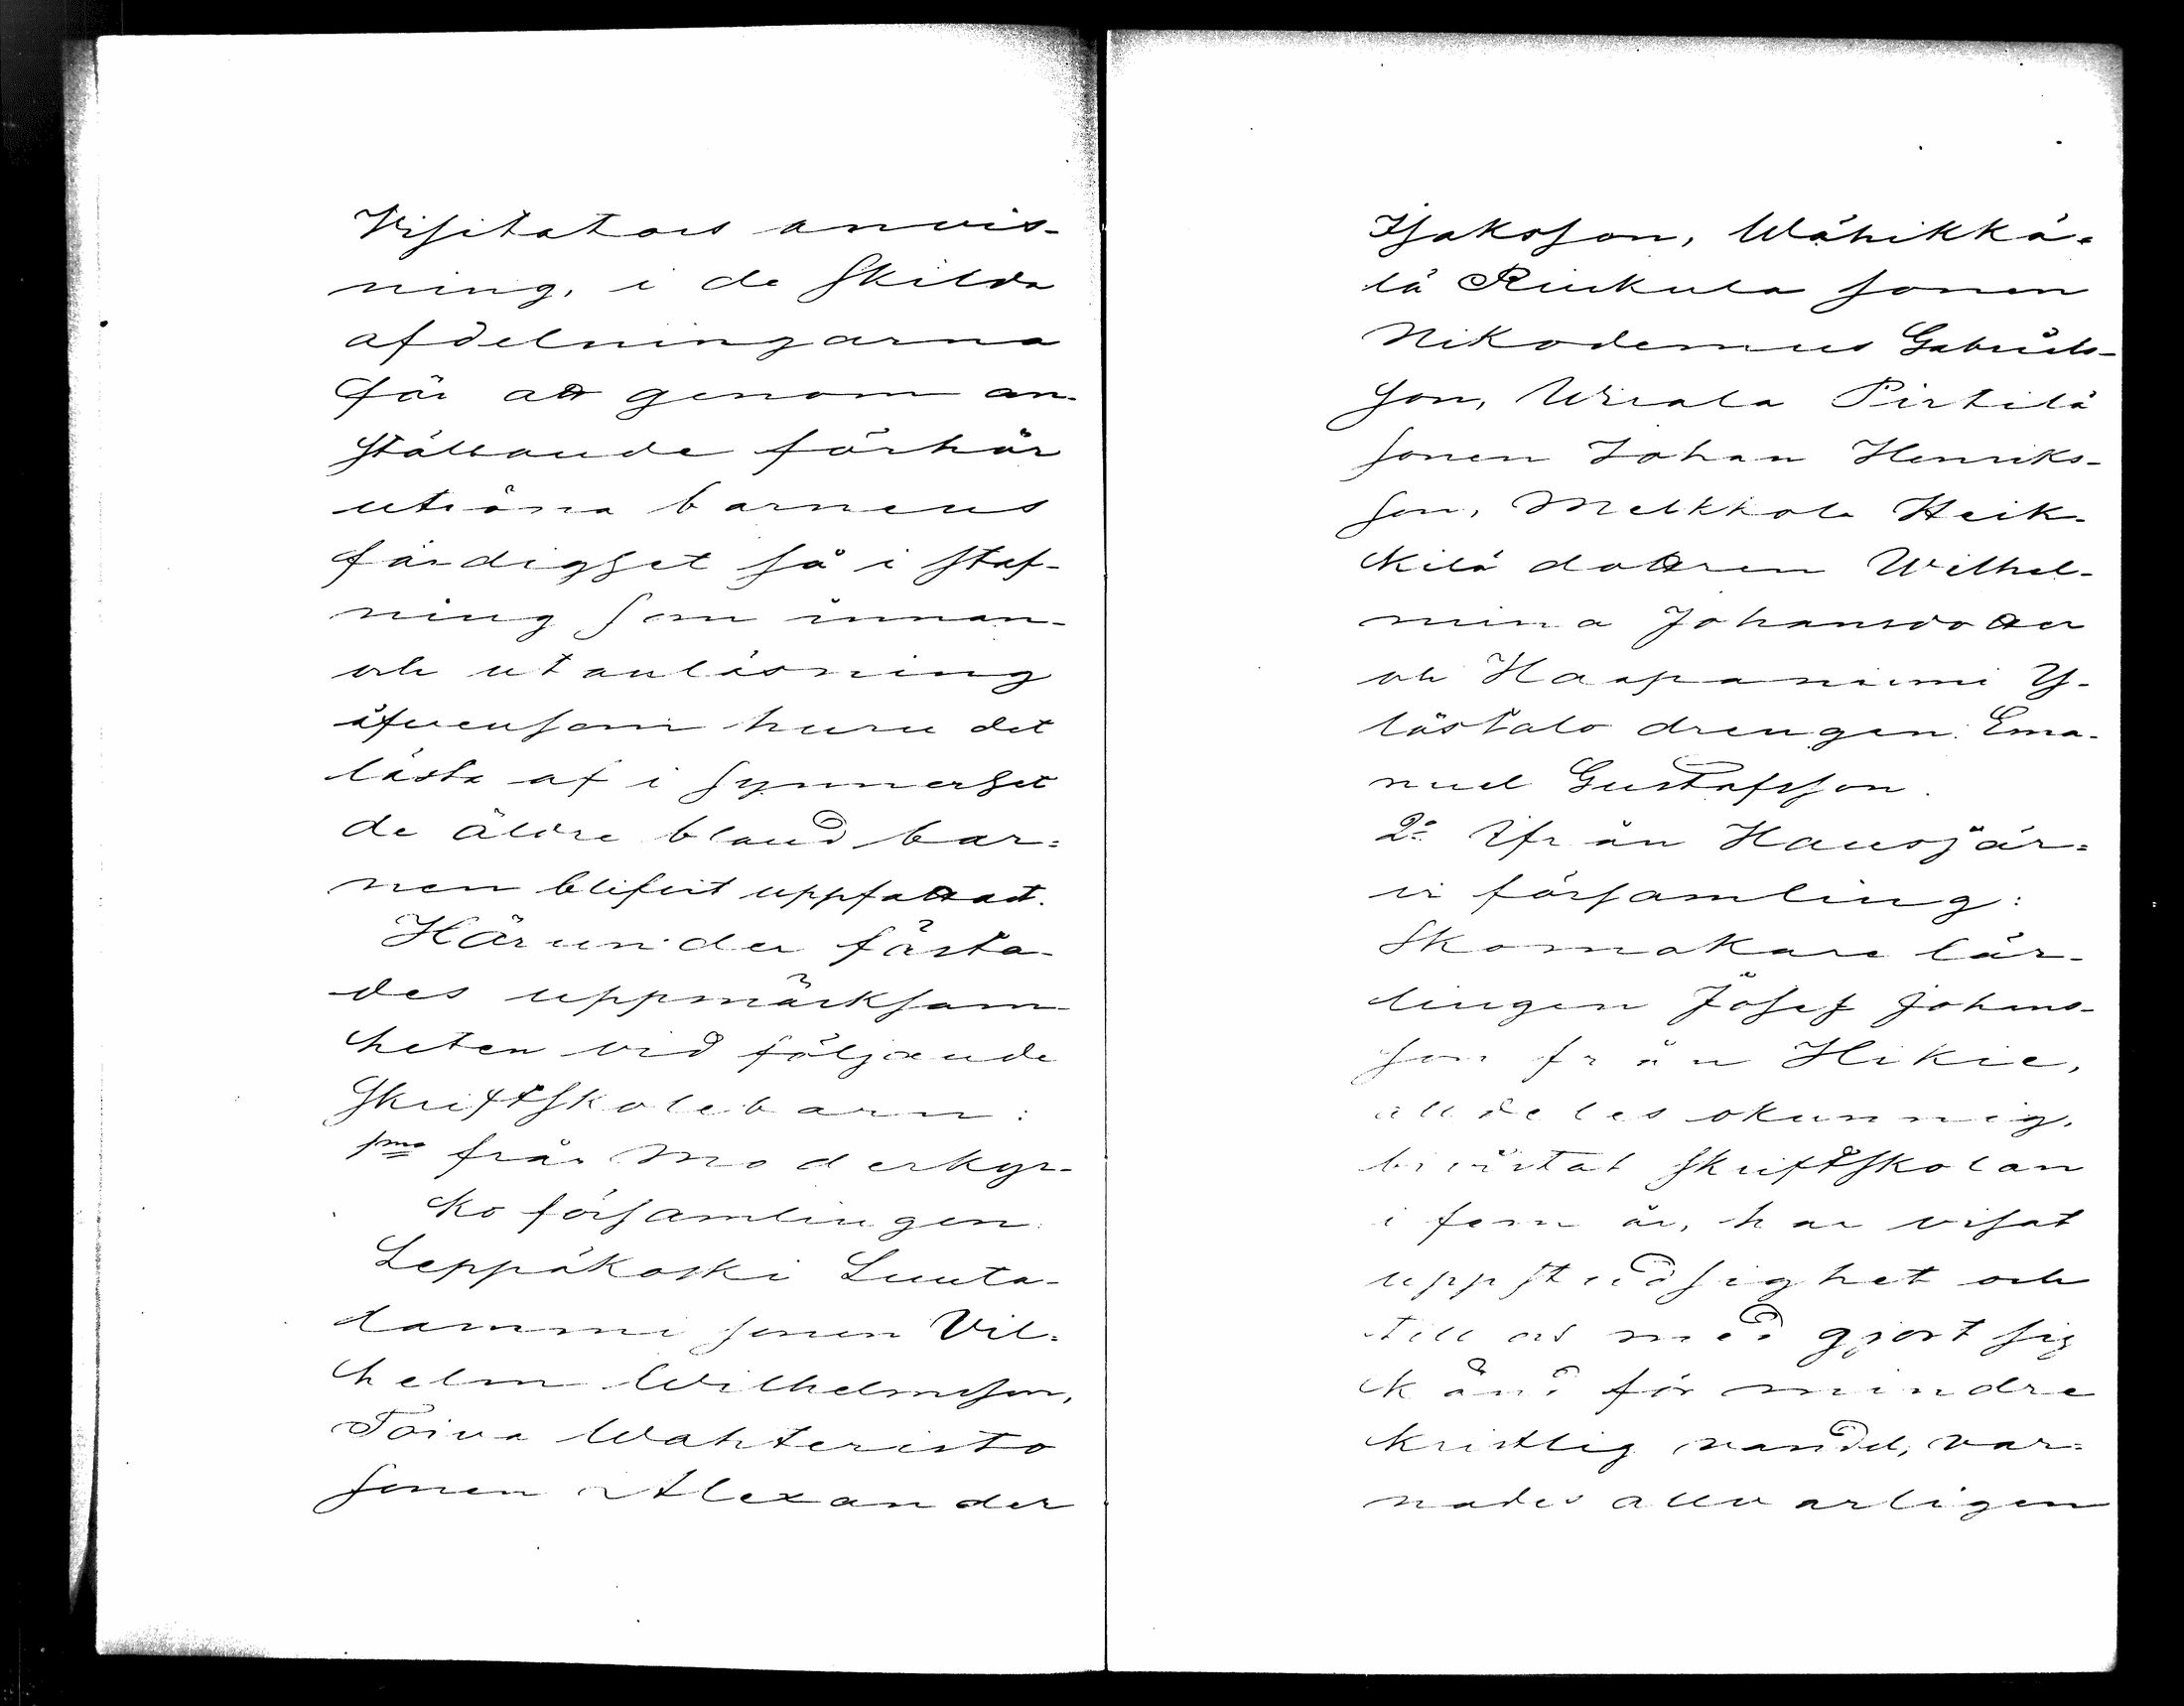 Visitators anvis-
ning, i de skilda
afdelningarna
för att genom an-
ställande förhör
utröna barnens
färdighet så i staf-
ning som innan-
och utanläsning
äfvensom huru det
lästa af i synnerhet
de äldre bland bar=
nen blifvit uppfattadt.
Härunder fästa-
des uppmärksam-
heten vid följande
Skriftskolebarn:
1mo från Moderkyr-
ko församlingen:
Leppäkoski Luuta-
lammi sonen Vil=
helm Wilhelmsson,
Toivo Wahteristo
sonen Alexander
Isaksson, Wähikkä-
lä Rinkula sonen
Nikodemus Gabriels-
son, Uriala Pirtilä
sonen Johan Henriks-
son, Melkkola Heik-
kilä dottren Wilhel-
mina Johansdotter
och Haapaniemi Y-
löstalo drengen Ema-
nuel Gustafsson.
2o Ifrån Hausjär=
vi församling:
Skomakare lär-
lingen Josef Johans-
son från Hikie,
alldeles okunnig,
bivistat skriftskolan
i fem år, har visat
uppstudsighet och
till och med gjort sig
känd för mindre
kristlig vandel, var=
nades allvarligen